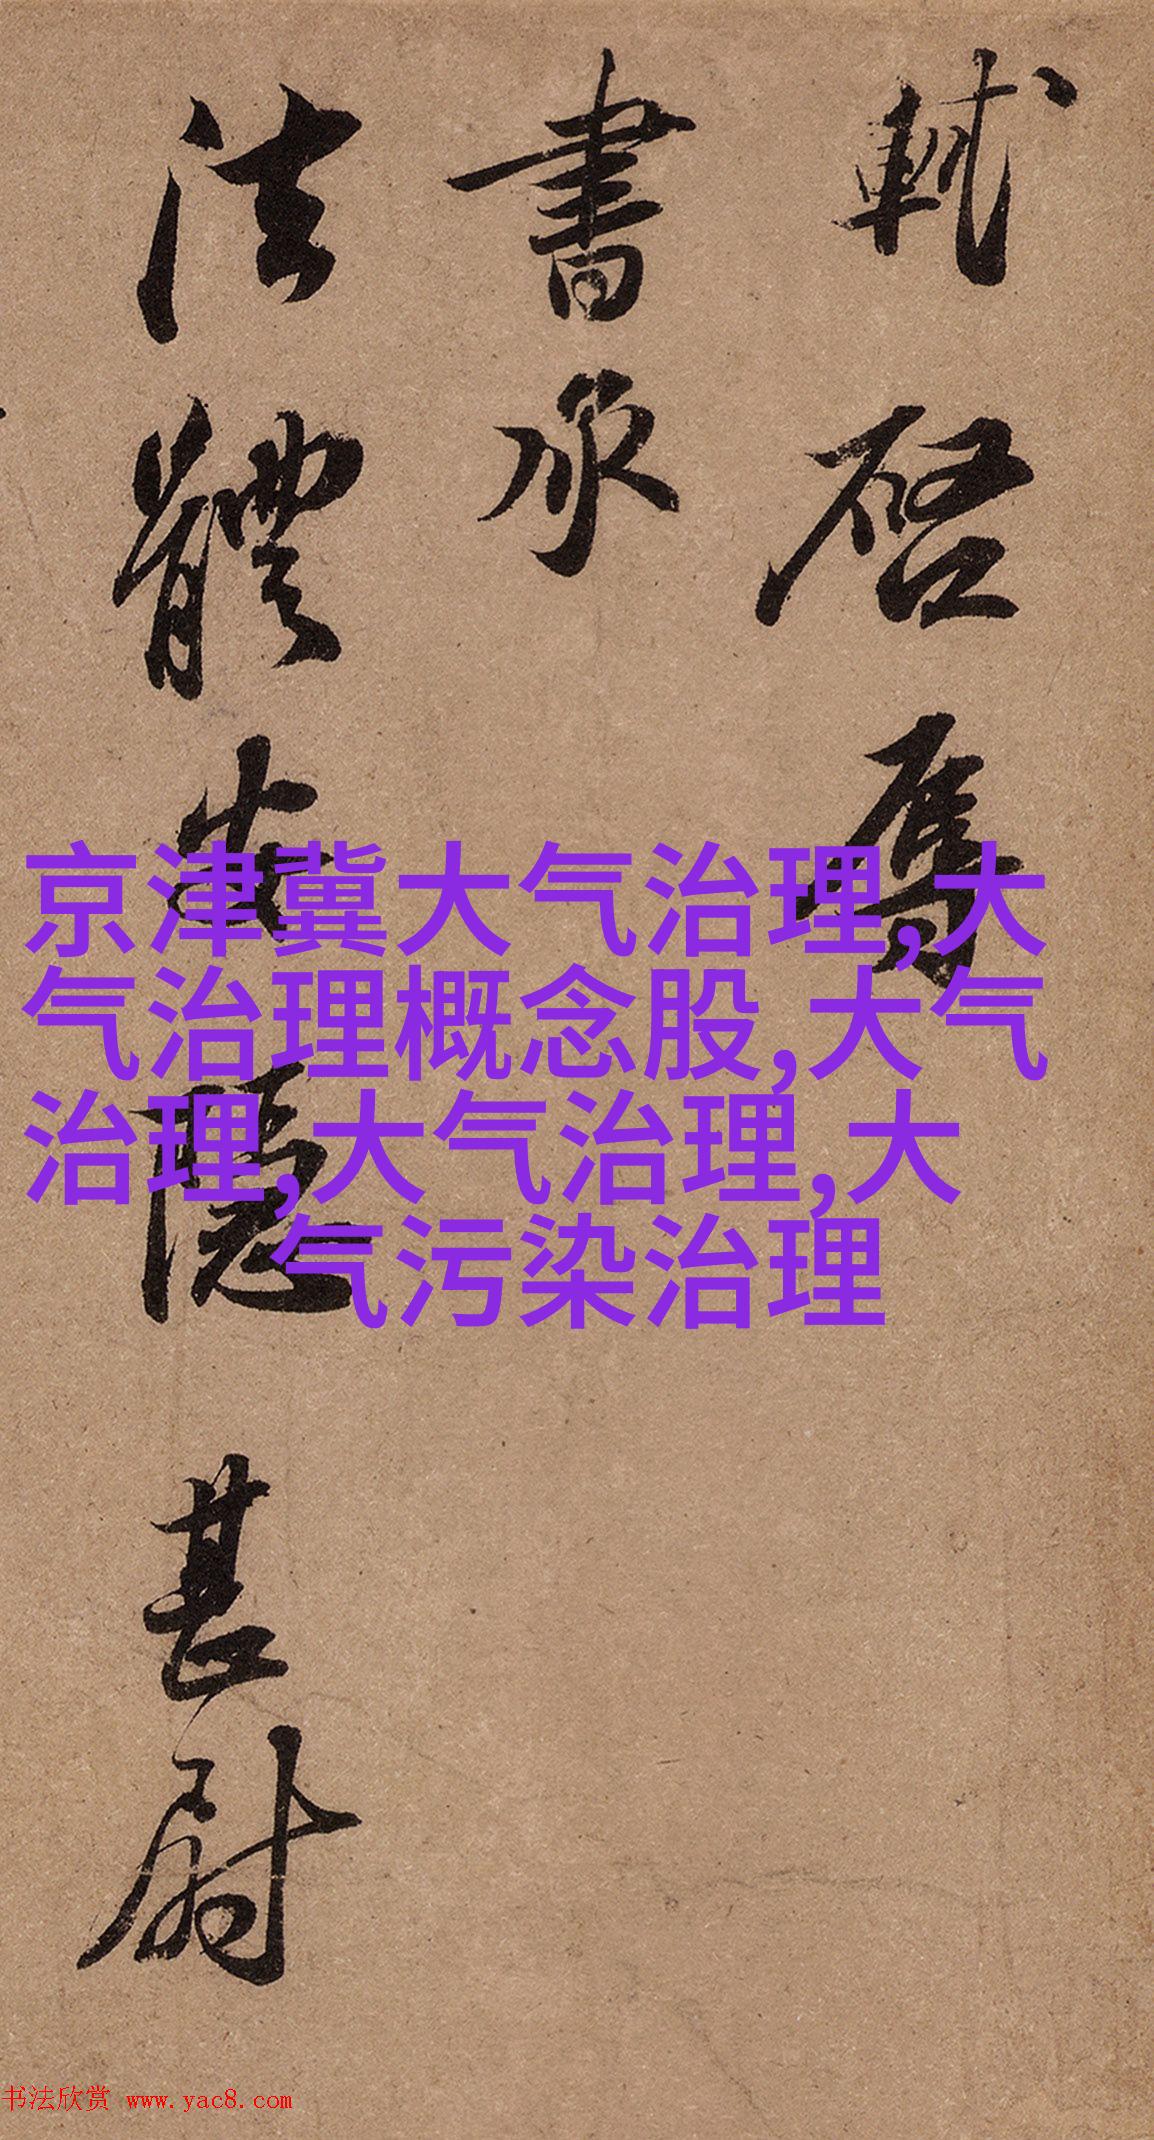 軾啓辱
書承
法體安隱甚尉
京津冀大气治理,大
气治理概念股,大气
治理,大气治理,大
气污染治理
书法欣赏 www.yac8.com